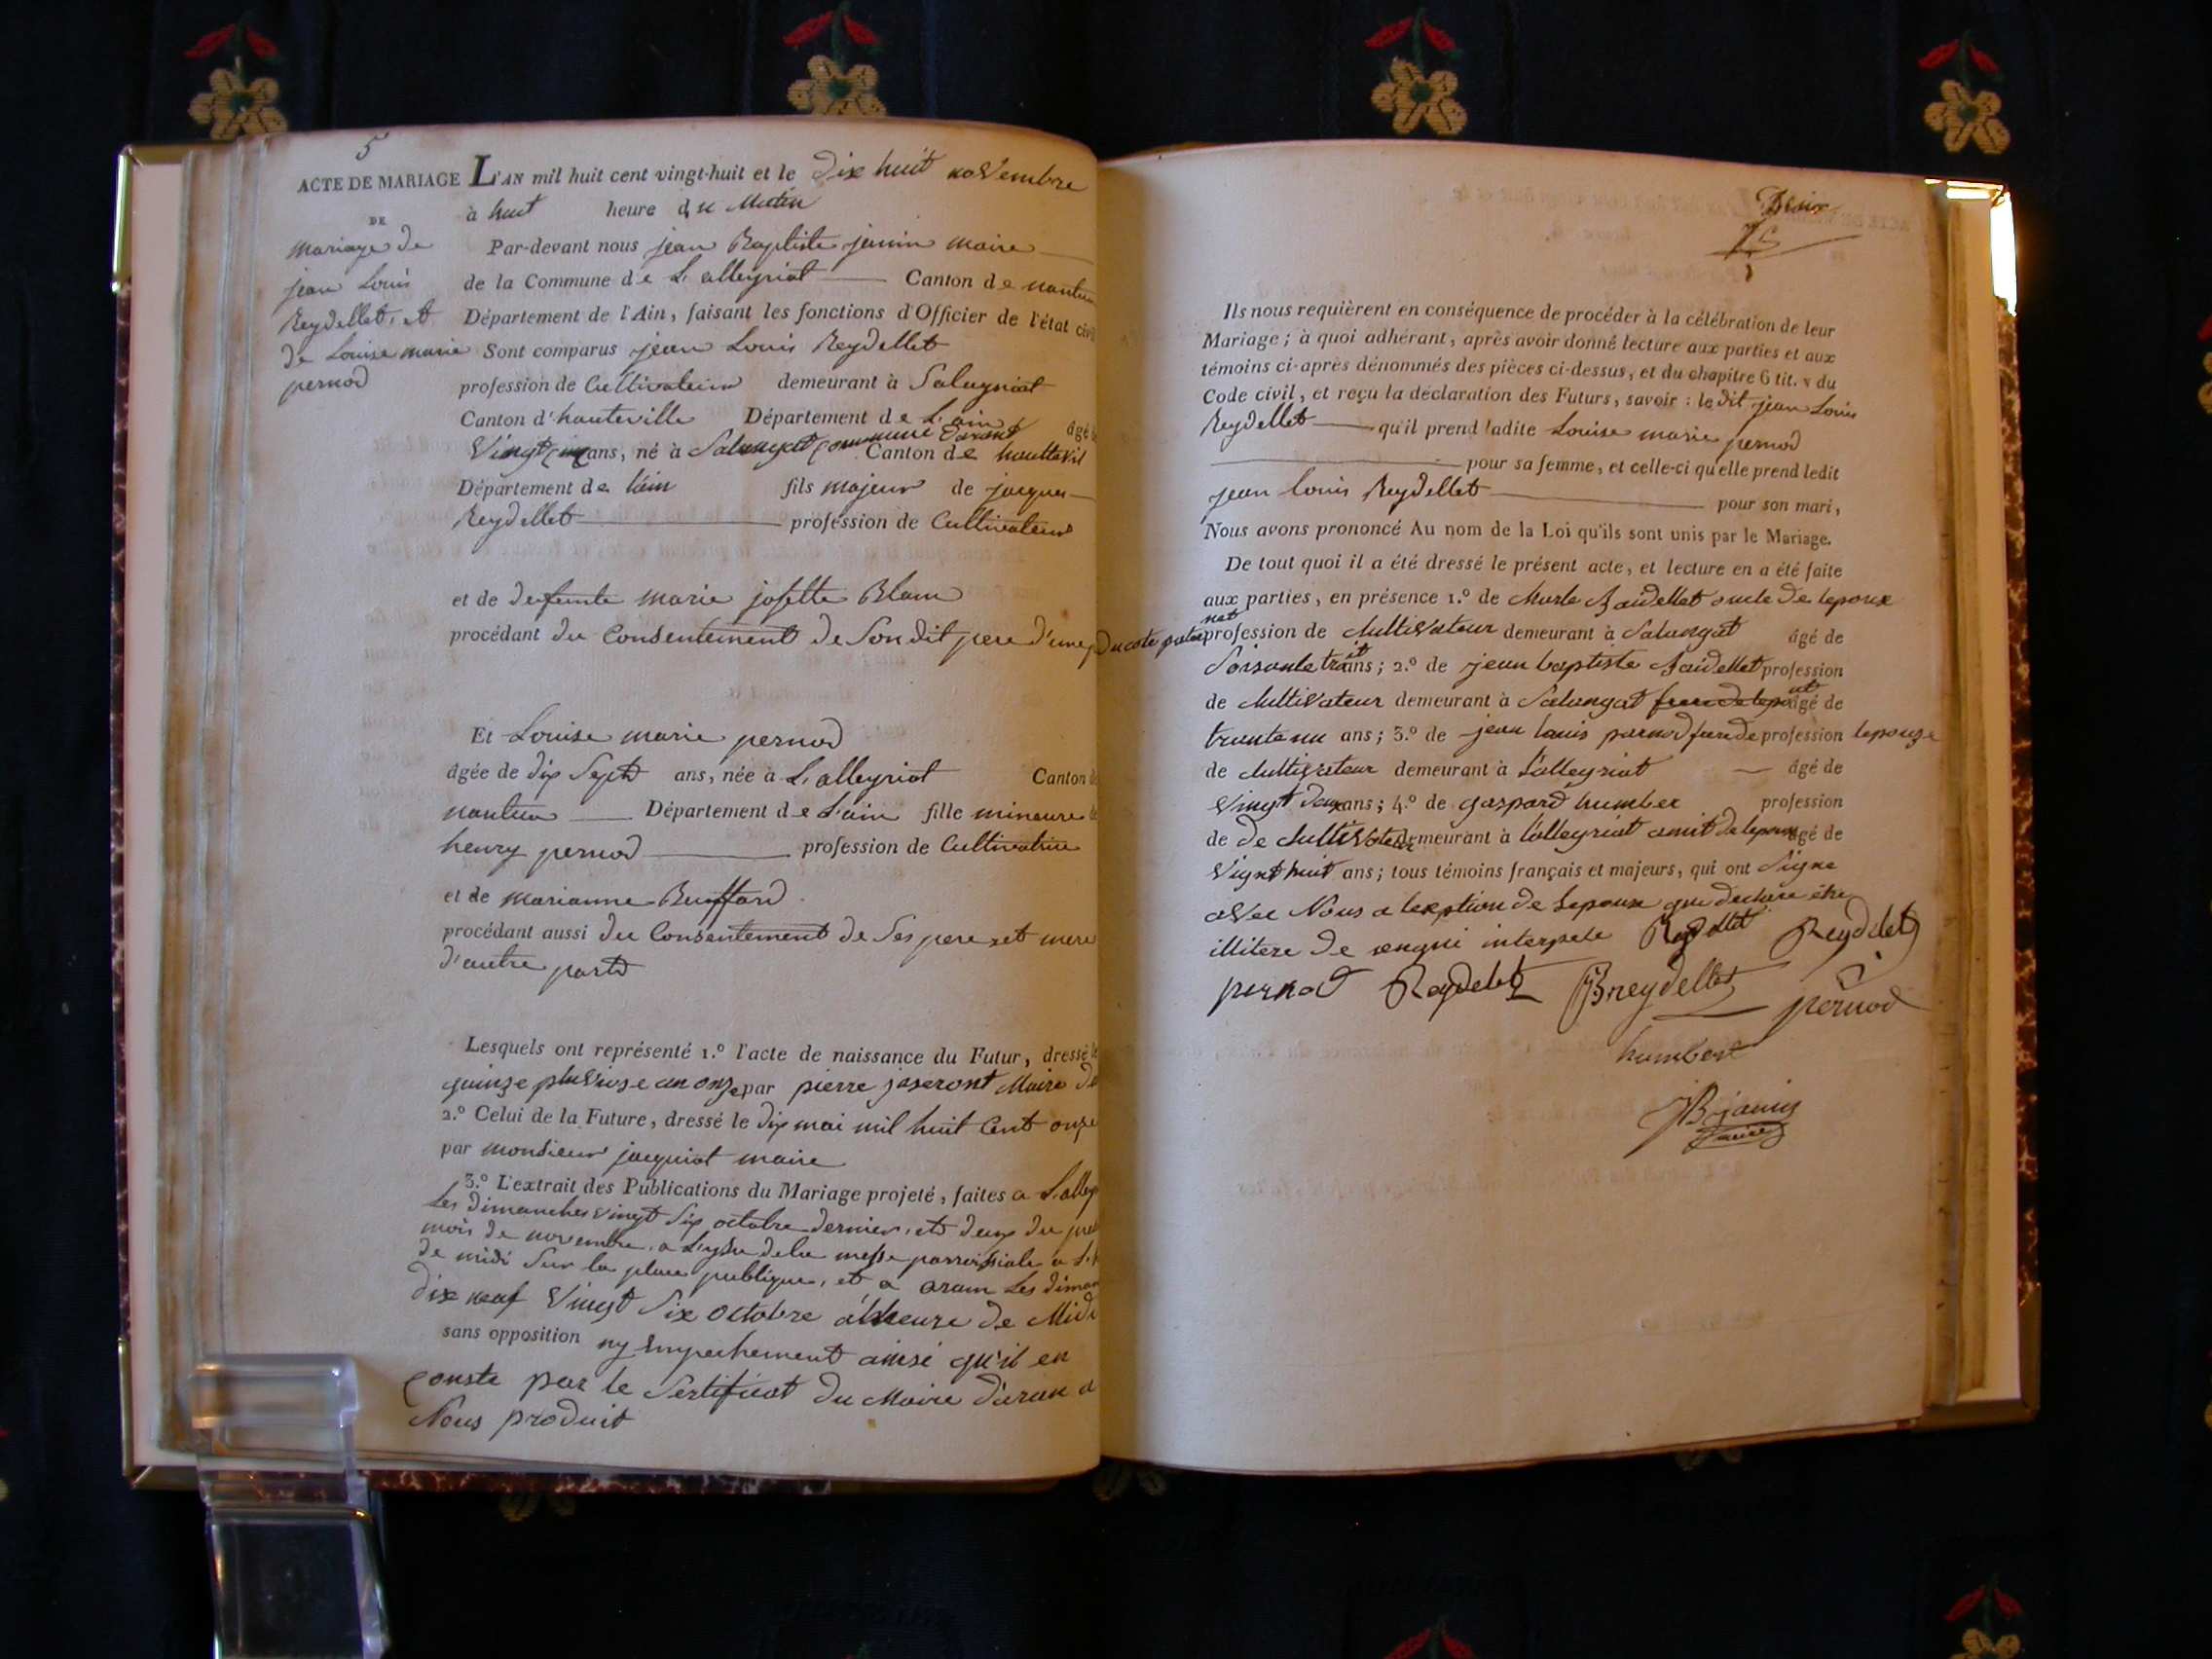 5
ACTE DE MARIAGE
DE
mariage de
jean Louis
Reydellet, et
de Louise marie
pernod
L'AN mil huit cent vingt-huit et le dix huit novembre
à huit heure du Matin
Par-devant nous jean Baptiste janin maire
de la Commune de L'alleyriat Canton de nantua
Département de l'Ain, faisant les fonctions d'Officier de l'état civil
Sont comparus jean Louis Reydellet
profession de Cultivateur demeurant à
Canton d'hauteville Département de L'ain âgé de
Vingt cinq ans, né à commune Canton de
Département de l'ain fils majeur de jacques
Reydellet profession de Cultivateur
et de defunte marie josette Blanc
procédant du Consentement de Son dit pere d'une part
Et Louise marie pernod
âgée de dix Sept ans, née à L'alleyriat Canton de
nantua Département de L'ain fille mineure de
henry pernod profession de Cultivatrice
et de marianne Buffard
procédant aussi du Consentement de Ses pere et mere
d'autre part
Lesquels ont représenté 1.º l'acte de naissance du Futur, dressé le
quinze pluviose an onze par pierre joseront Maire
2.º Celui de la Future, dressé le dix mai mil huit Cent onze
par monsieur jacquiot maire
3.º L'extrait des Publications du Mariage projeté, faites a
Les dimanches vingt Six octobre dernier, et deux du
mois de novembre, a de la messe parroissiale a
de midi Sur la place publique, et a aram Les
dix neuf Vingt Six octobre a l'heure de Midi
sans opposition ny Empechement ainsi qu'il en
Conste par le Sertificat du Maire d'aran a
Nous produit
Ils nous requièrent en conséquence de procéder à la célébration de leur
Mariage; à quoi adhérant, après avoir donné lecture aux parties et aux
témoins ci-après dénommés des pièces ci-dessus, et du chapitre 6 tit. v du
Code civil, et reçu la déclaration des Futurs, savoir: le dit jean Louis
Reydellet qu'il prend ladite Louise marie pernod
pour sa femme, et celle-ci qu'elle prend ledit
jean louis Reydellet pour son mari,
Nous avons prononcé Au nom de la Loi qu'ils sont unis par le Mariage.
De tout quoi il a été dressé le présent acte, et lecture en a été faite
aux parties, en présence 1.º de oncle de lepoux
du cote pater nel
profession de Cultivateur demeurant à Salangat âgé de
Soisante ans; 2.º de jean baptiste profession
de Cultivateur demeurant à Salangat âgé de
trante un ans; 3.º de jean louis pernod frere de profession lepouse
de Cultivateur demeurant à L'alleyriat âgé de
Vingt deux ans; 4.º de gaspard humber profession
de de Cultivateur demeurant à lalleyriat amit de lepoux âgé de
Vignt huit ans; tous témoins français et majeurs, qui ont Signe
avec Nous a lexption de lepouse qui declare étre
illitere de
Reydellet Reydelet
pernod Reydelet BReydellet pernod
humbert
JB janin
maire